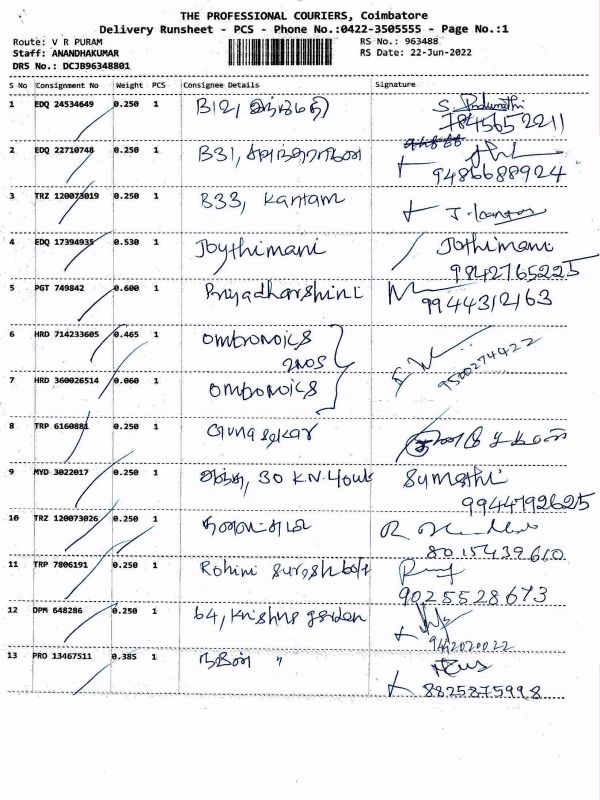 THE PROFESSIONAL COURIERS, Coimbatore
Delivery Runsheet - PCS - Phone No.:0422-3505555 - Page No.:1
Route: V R PURAM
RS No.: 963488
Staff: ANANDHAKUMAR
RS Date: 22-Jun-2022
DRS No.: DCJB96348801
S No Consignment No Weight PCS Consignee Details Signature
1 EDQ 24534649 0.250 1 B12,
7845652211
2 EDQ 22710748 0.250 1 B31,
9486688924
3 TRZ 120073019 0.250 1 B33, Kantam
4 EDQ 17394935 0.530 1 Joythimani Jothimani
9842765225
5 PGT 749842 0.600 1 Priyadharshini
9944312163
6 HRD 714233605 0.465 1 ombronoics
2nos
9500274422
7 HRD 360026514 0.060 1 ombronoics
8 TRP 6160881 0.250 1 Gunasekar குணசேகரன்
9 MYD 3022017 0.250 1 30 K.N. Sumathi
9944792625
10 TRZ 120073026 0.250 1
8015439610
11 TRP 7806191 0.250 1 Rohini
9025528673
12 DPM 648286 0.250 1 64, Krishna garden
9442020022
13 PRO 13467511 0.385 1 "
8825875998